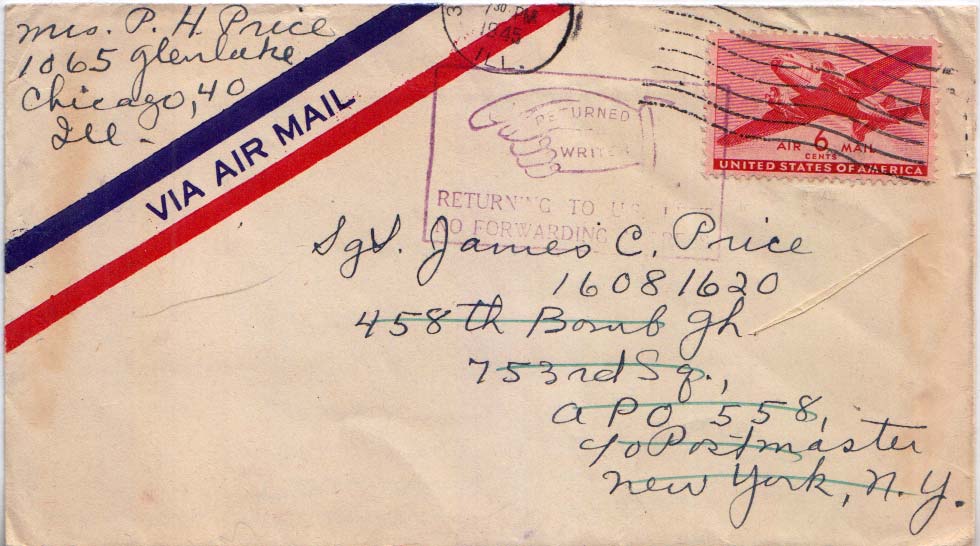 Mrs. P. H. Price
1065 Glenlake
Chicago, 40
Ill -
VIA AIR MAIL
3
7 30 PM
1945
ILL.
RETURNED
WRITER
RETURNING TO U.S.
NO FORWARDING
AIR 6 MAIL
CENTS
UNITED STATES OF AMERICA
Sgt. James C. Price
16081620
458th Bomb Gh.
753rd Sq.,
APO 558,
c/o Postmaster
New York, N.Y.